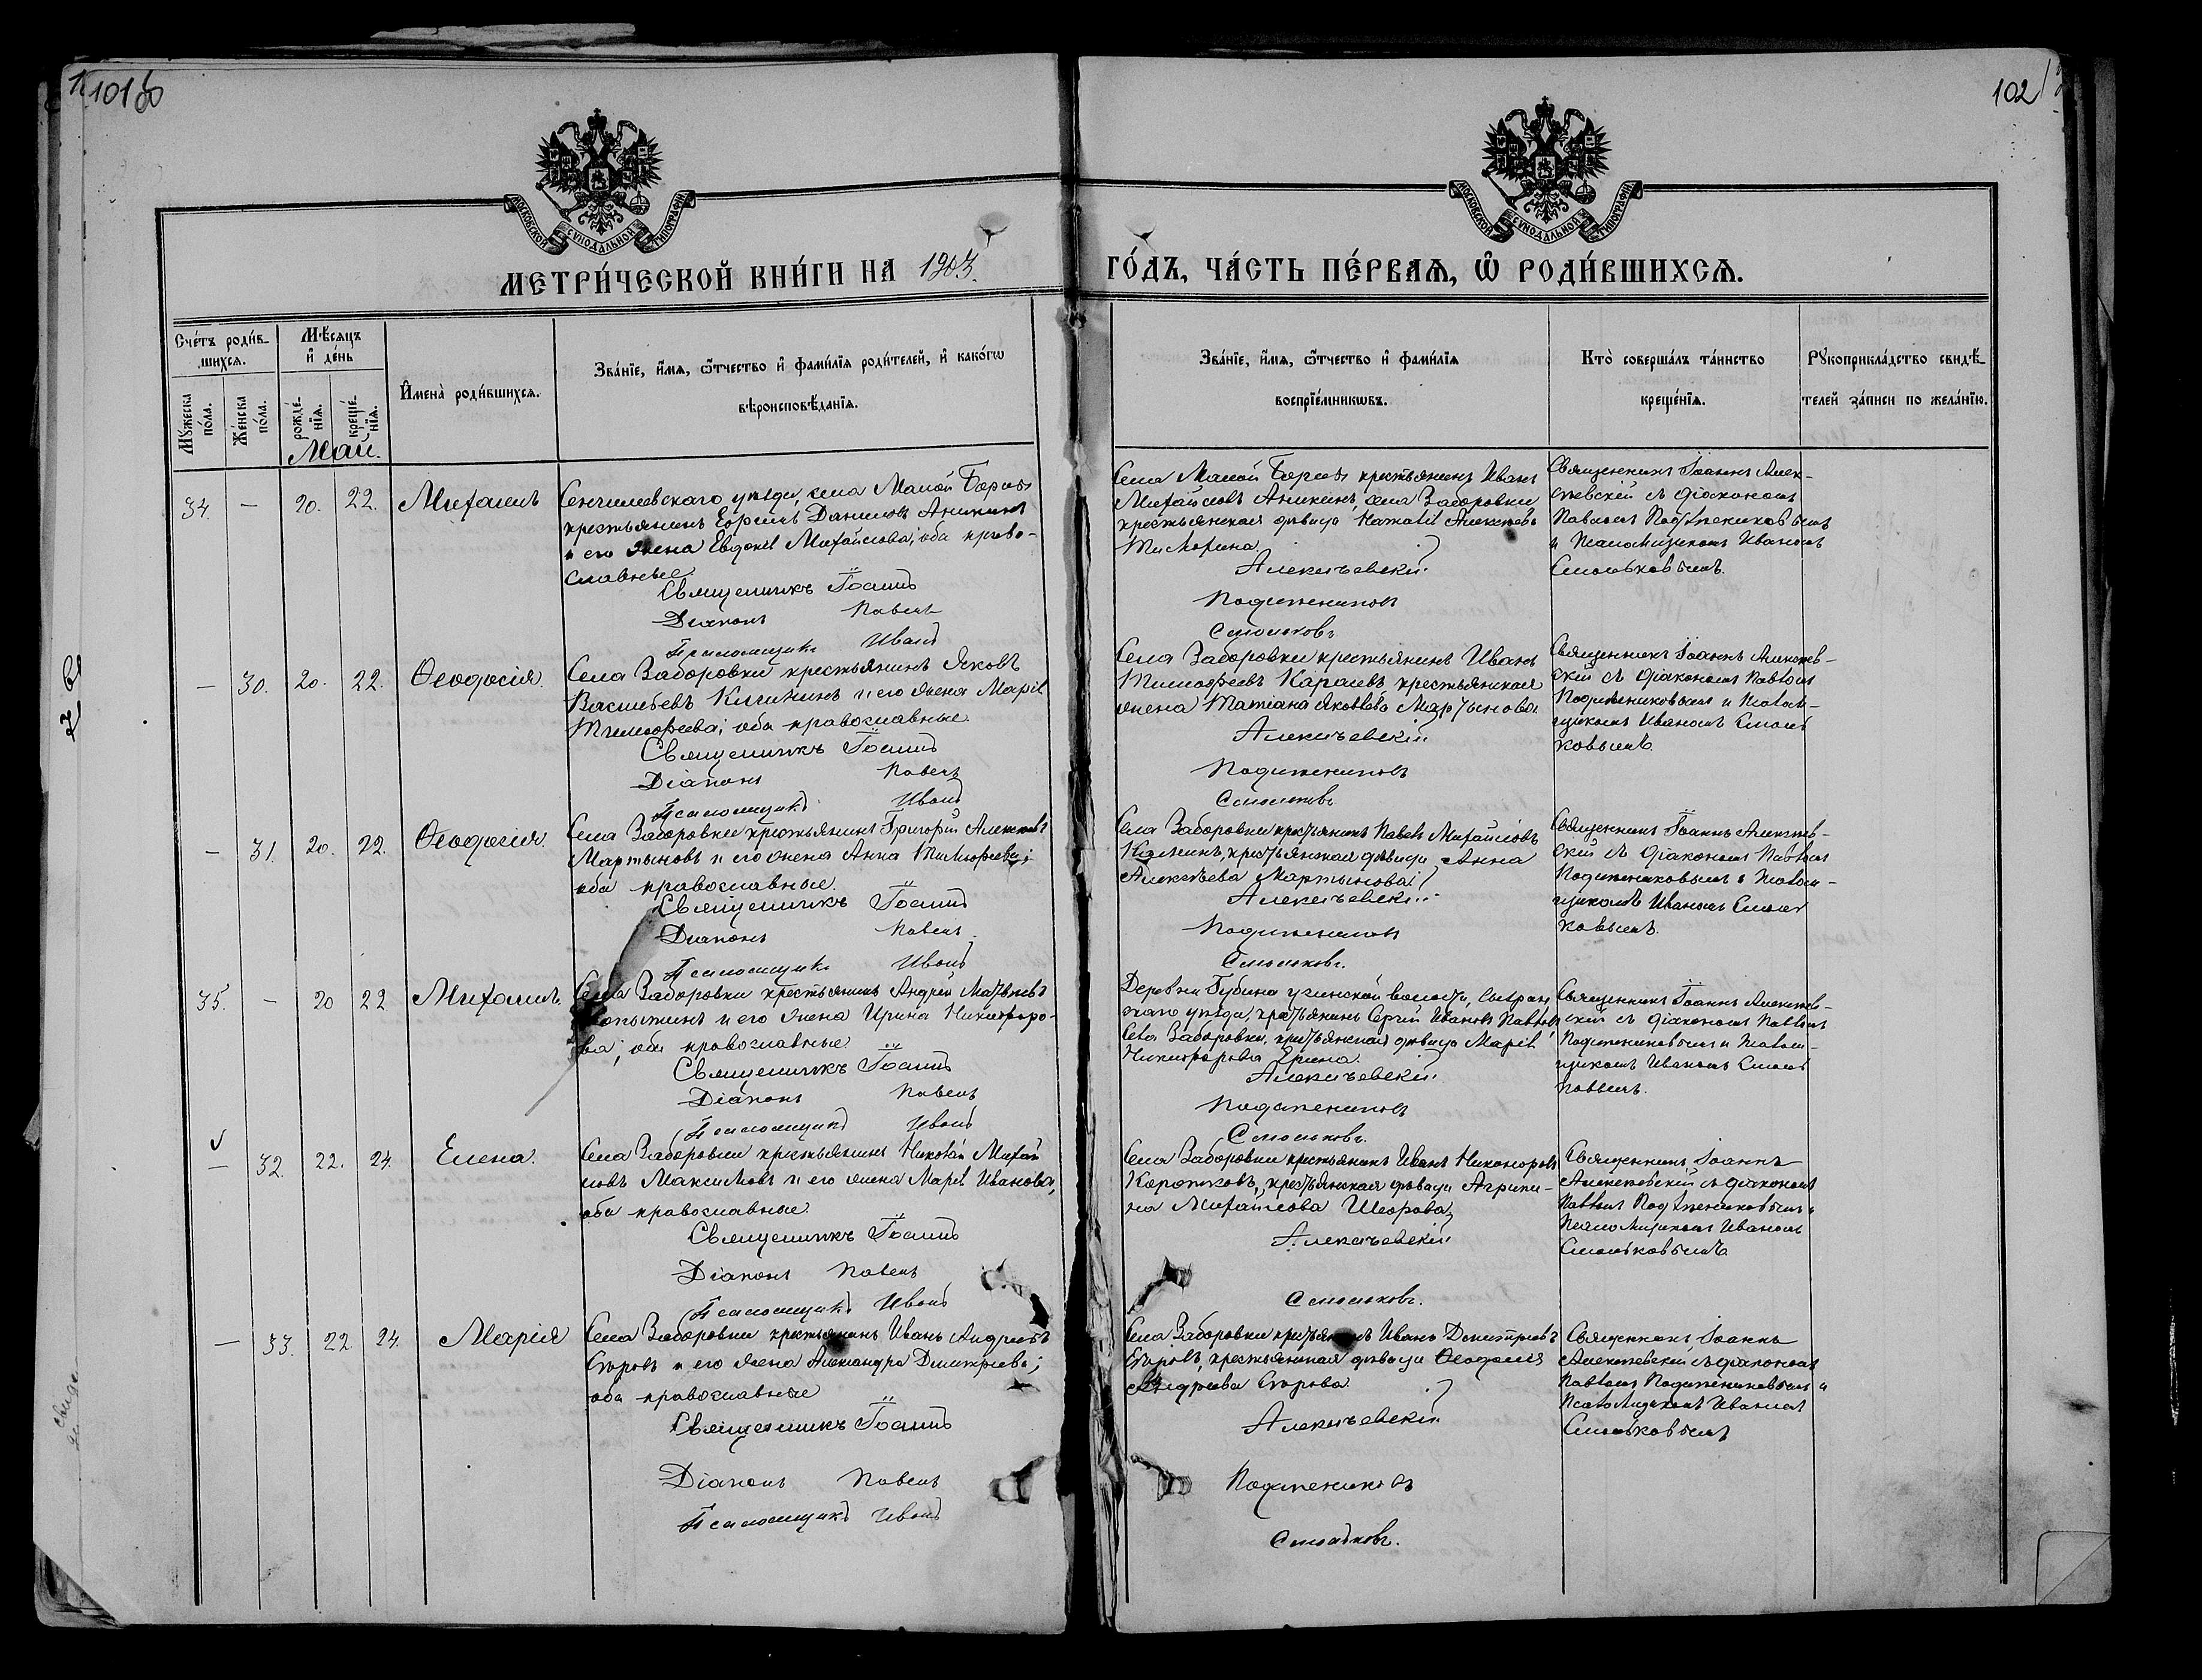 101 об
102
МОСКОВСКОЙ СУНОДАЛЬНОЙ ТИПОГРАФІИ
МОСКОВСКОЙ СУНОДАЛЬНОЙ ТИПОГРАФІИ
МЕТРИ́ЧЕСКОЙ КНИ́ГИ НА 1903
ГО́ДЪ, ЧА́СТЬ ПЕ́РВАѦ, Ѡ҆ РОДИ́ВШИХСѦ.
Сче́тъ роди́в-
шихсѧ.
Мꙋ́жеска по́ла.
Же́нска по́ла.
Мѣ́сяцъ
и҆ де́нь
рожде́-
нїѧ.
креще́-
нїѧ.
И҆мена̀ роди́вшихсѧ.
Зва́нїе, и҆́мѧ, ѻ҆́тчество и҆ фами́лїѧ роди́телей, и҆ како́гѡ
вѣроисповѣ́данїѧ.
Зва́нїе, и҆́мѧ, ѻ҆́тчество и҆ фами́лїѧ
воспрїе́мникѡвъ.
Кто̀ соверша́лъ та́инство
креще́нїѧ.
Рꙋкоприкла́дство свидѣ́-
телей за́писи по жела́нїю.
Май.
34. — 20. 22. Михаилъ
Сенгилеевскаго уѣзда, села Малой Борлы
крестьянинъ Ефремъ Даниловъ Аникинъ
и его жена Евдокія Михайлова; оба право-
славные.
Священникъ Іоаннъ
Діаконъ Павелъ
Псаломщикъ Иванъ
Села Малой Борлы крестьянинъ Иванъ
Михайловъ Аникинъ, села Заборовки
крестьянская дѣвица Наталія Алексѣева
Тимофеина.
Алексѣевскій
Подтяжениковъ
Смольковъ
Священникъ Іоаннъ Алек-
сѣевскій съ діакономъ
Павломъ
и Псаломщикомъ Иваномъ
Смольковымъ.
— 30. 20. 22. Ѳеодосія.
Села Заборовки крестьянинъ Яковъ
Васильевъ Кичигинъ и его жена Марія
Тимофеева; оба православные
Священникъ Іоаннъ
Діаконъ Павелъ
Псаломщикъ Иванъ
Села Заборовки крестьянинъ Иванъ
Тимофеевъ Каралевъ крестьянская
жена Татіана Яковлева Мартынова.
Алексѣевскій
Смольковъ
Священникъ Іоаннъ Алексѣев-
скій съ діакономъ Павломъ
и Псалом-
щикомъ Иваномъ Смоль
ковымъ
— 31. 20. 22. Ѳеодосія.
Села Заборовки крестьянинъ Григорій Алексѣевъ
Мартыновъ и его жена Анна Тимофеева;
оба православные.
Священникъ Іоаннъ
Діаконъ Павелъ
Псаломщикъ Иванъ
Села Заборовки крестьянинъ Павелъ Михайловъ
крестьянская дѣвица Анна
Алексѣева Мартынова
Алексѣевскій
Смольковъ.
Священникъ Іоаннъ Алексѣев-
скій съ діакономъ Павломъ
и Псалом-
щикомъ Иваномъ Смоль
ковымъ.
35. — 20 22 Михаилъ.
Села Заборовки крестьянинъ Андрей Матвѣевъ
и его жена Ирина Никифоро-
ва; оба православные
Священникъ Іоаннъ
Діаконъ Павелъ
Псаломщикъ Иванъ
Деревни Губина волости, Сызран
скаго уѣзда, крестьянинъ Сергій Ивановъ Павловъ
Села Заборовки, крестьянская дѣвица Марія
Никифорова
Алексѣевскій
Смольковъ.
Священникъ Іоаннъ Алексѣев-
скій съ діакономъ Павломъ
и Псалом-
щикомъ Иваномъ Смоль
ковымъ.
— 32. 22. 24. Елена.
Села Заборовки крестьянинъ Николай Михай
ловъ Максимовъ и его жена Марія Иванова,
оба православные.
Священникъ Іоаннъ
Діаконъ Павелъ
Псаломщикъ Иванъ
Села Заборовки крестьянинъ Иванъ Никоноровъ
Коротковъ, крестьянская дѣвица Агрипи-
на Михайлова
Алексѣевскій
Смольковъ.
Священникъ Іоаннъ
Алексѣевскій съ діакономъ
Павломъ и
Псаломщикомъ Иваномъ
Смольковымъ
— 33. 22 24. Марія
Села Заборовки крестьянинъ Иванъ Андреевъ
Егоровъ и его жена Александра Димитріева;
оба православные
Священникъ Іоаннъ
Діаконъ Павелъ
Псаломщикъ Иванъ
Села Заборовки крестьянинъ Иванъ Димитріевъ
Егоровъ, крестьянская дѣвица Ѳеодосія
Андреева Егорова.
Алексѣевскій
Смольковъ.
Священникъ Іоаннъ
Алексѣевскій съ діакономъ
Павломъ и
Псаломщикомъ Иваномъ
Смольковымъ